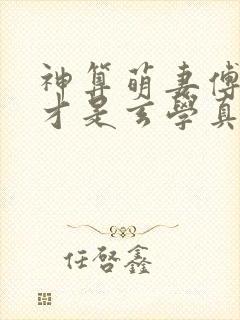 神算萌妻傅
才是玄學真
任啓鑫